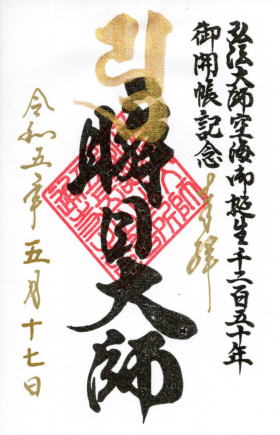 弘法大師空海御誕生千二百五十年
御開帳記念
奉拝
明目大師
令和五年五月十七日